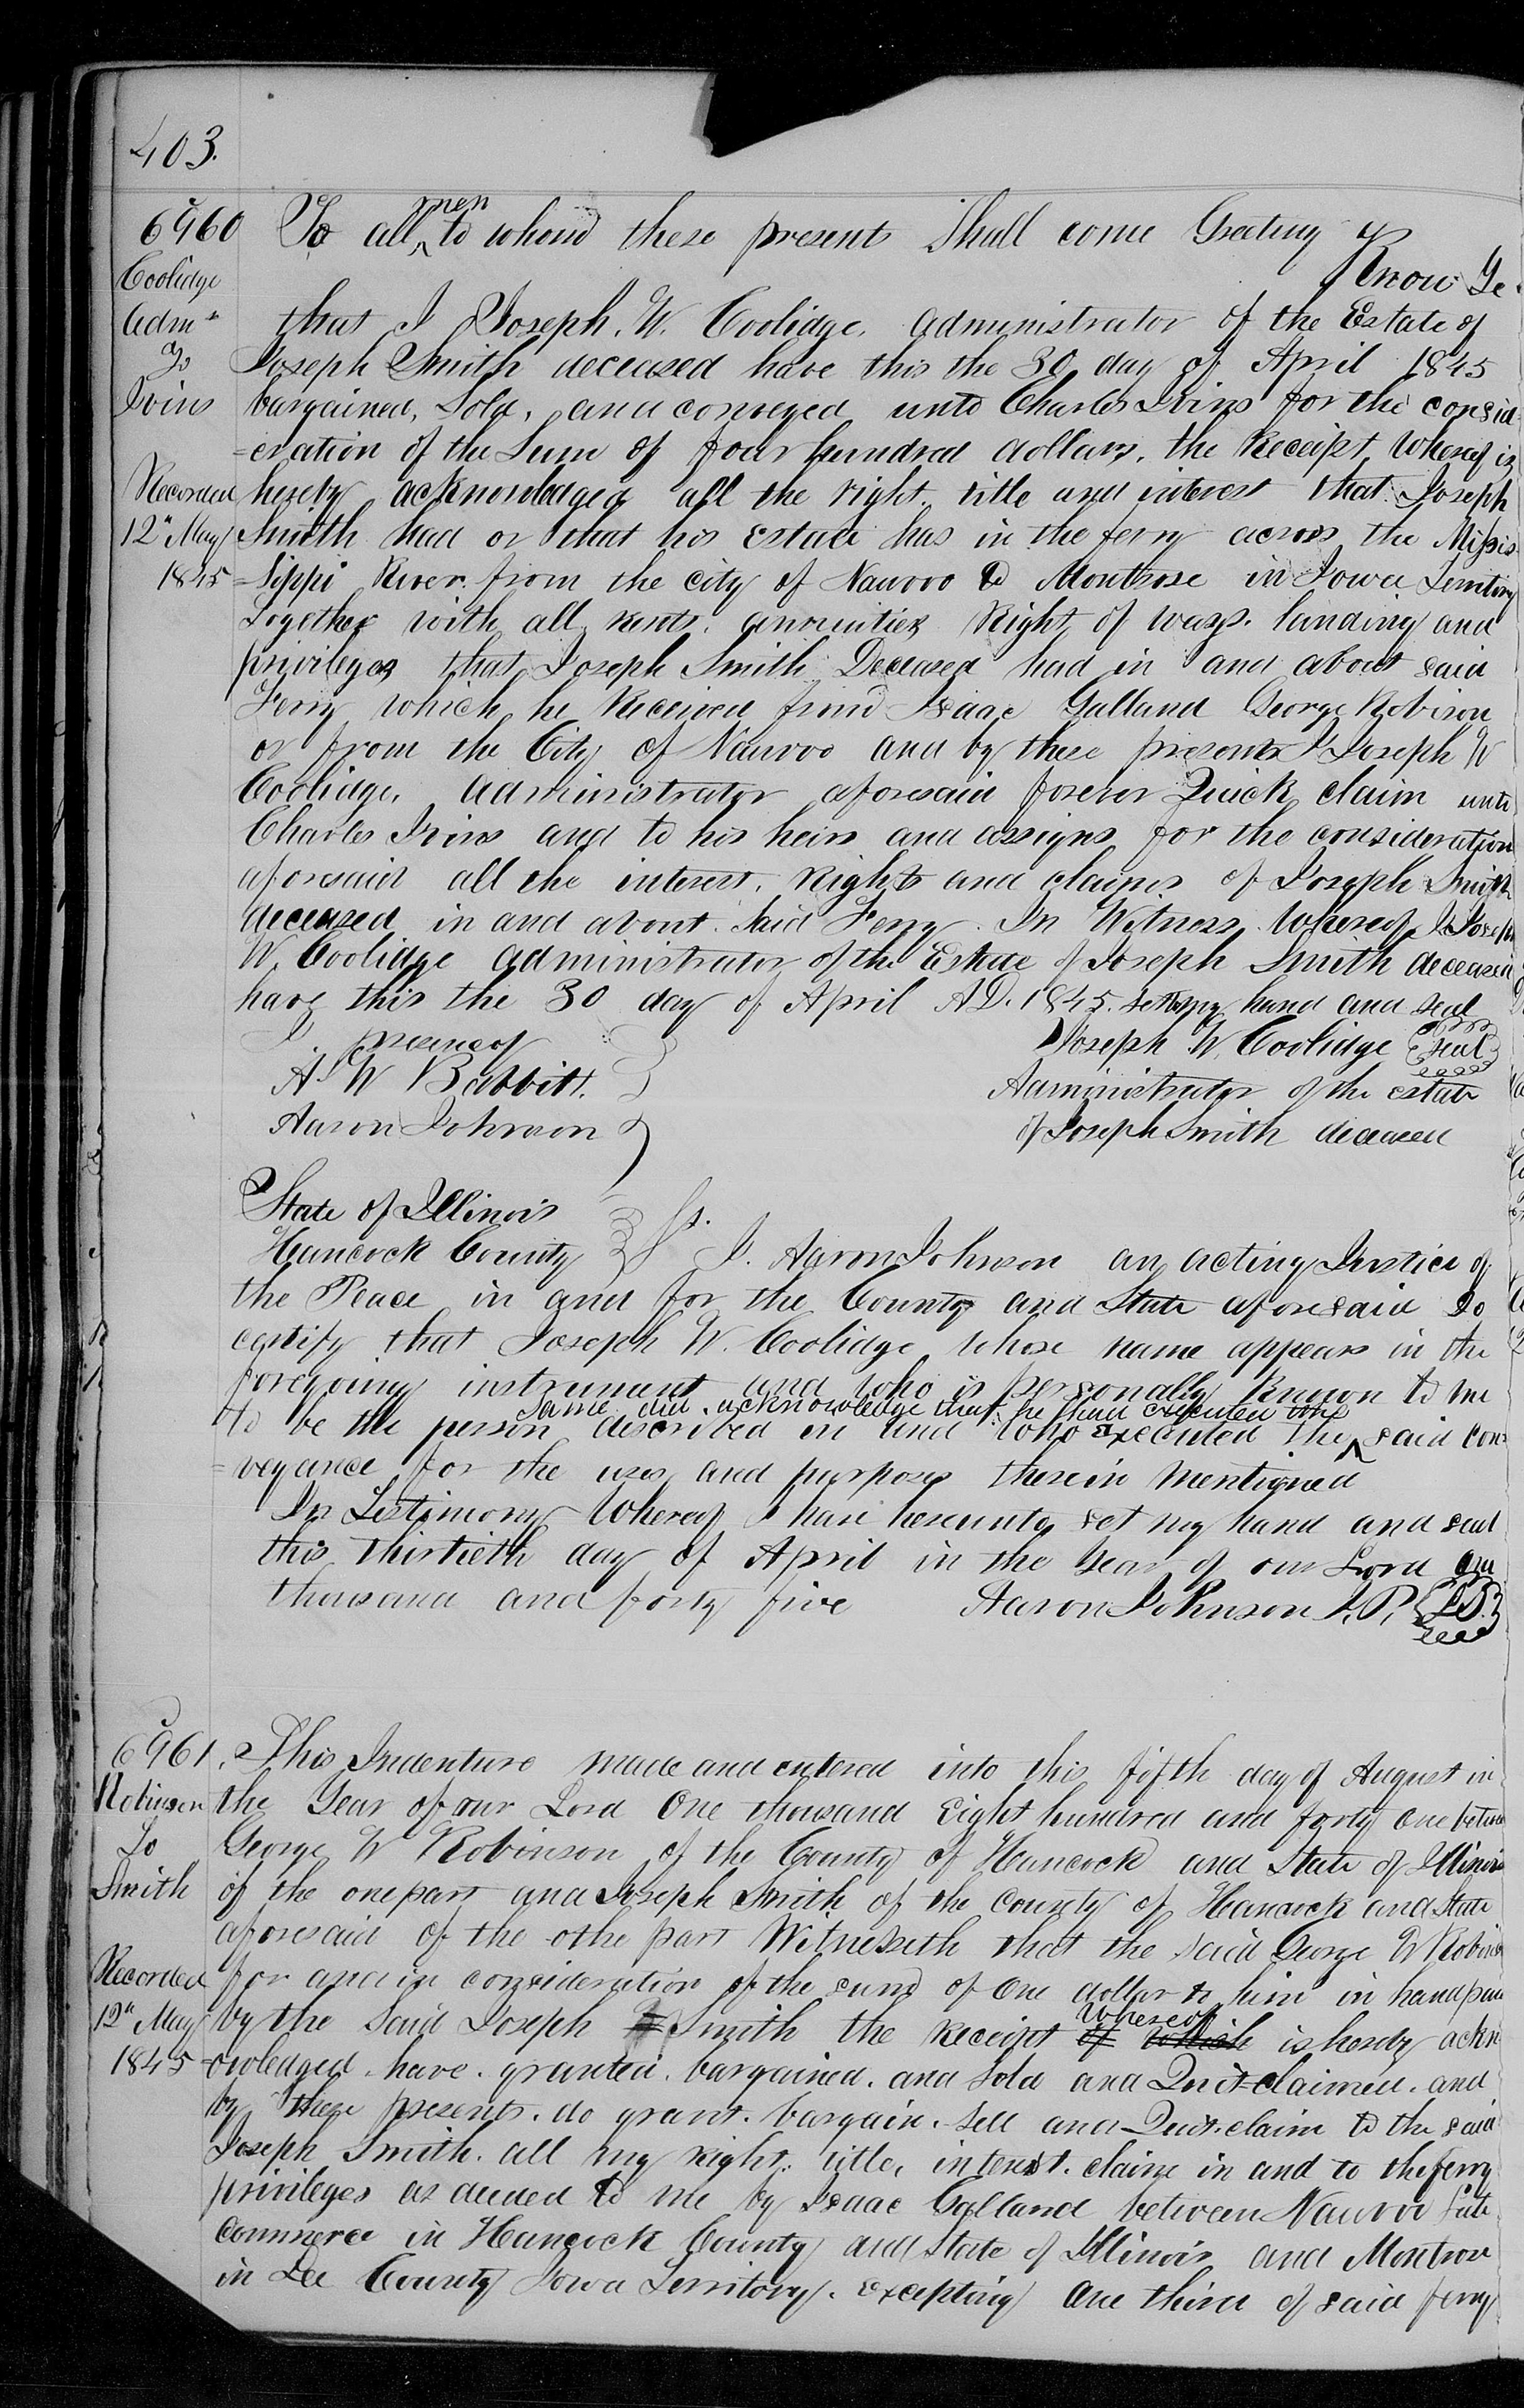 403.
6960
Coolidge
Admr
To
Ivins
Recorded
12" May
1845
To all men to whom these present Shall come Greeting
Know Ye.
that I Joseph. W. Coolidge. Administrator of the Estate of
Joseph Smith deceased have this the 30 day of April 1845
bargained, Sold, and conveyed unto Charles Ivins for the consid-
=eration of the Sum of four hundred dollars, the Receipt Whereof is
hereby acknowledged all the right. title and interest that Joseph
Smith had or that his Estate has in the ferry across the Missis-
=sippi River from the City of Nauvoo to Montrose in Iowa Territory
Together with all rents. annuities Right of ways. landing and
privileges that Joseph Smith Deceased had in and about said
Ferry which he Received from Isaac Galland George Robison
or from the City of Nauvoo and by these presents I Joseph W
Coolidge. Administrator aforesaid forever Quick claim unto
Charles Ivins and to his heirs and assigns for the consideration
aforesaid all the interest, Rights and claims of Joseph Smith
deceased in and about Said Ferry. In Witness Whereof I Joseph
W. Coolidge Administrator of the Estate of Joseph Smith deceased
have this the 30 day of April A.D. 1845. set my hand and seal
I. presence of
A. W Babbitt.
Aaron Johnson
Joseph W. Coolidge seal
Administrator of the estate
of Joseph Smith deceased
State of Illinois
Hancock County Ss. I. Aaron Johnson an acting Justice of
the Peace in and for the County and State aforesaid do
certify that Joseph W. Coolidge whose name appears in the
foregoing instrument and who is personally known to me
same did acknowledge that he had executed the
to be the person described in and who executed the said con=
=veyance for the uses and purposes therein mentioned
In Testimony Whereof I have hereunto set my hand and seal
this thirtieth day of April in the Year of our Lord one
thousand and forty five Aaron Johnson J. P. L.S.
6961.
Robinson
To
Smith
Recorded
12" May
1845
This Indenture made and entered into this fifth day of August in
the Year of our Lord One thousand Eight hundred and forty one between
George W Robinson of the County of Hancock and State of Illinois
of the one part and Joseph Smith of the County of Hancock and State
aforesaid of the othe part Witnesseth that the said George W Robinson
for and in consideration of the sum of One dollar to him in hand paid
by the Said Joseph Smith the Receipt of which Whereof is hereby ackn
=owledged. have. granted. bargained. and sold and Quit=claimed. and
by these presents. do grant. bargain. sell and Quit-claim to the said
Joseph Smith. all my right. title, interest. claim in and to the ferry
privileges as deeded to me by Isaac Galland between Nauvoo late
Commerce in Hancock County and State of Illinois and Montrose
in Lee County Iowa Territory. Excepting One third of said ferry